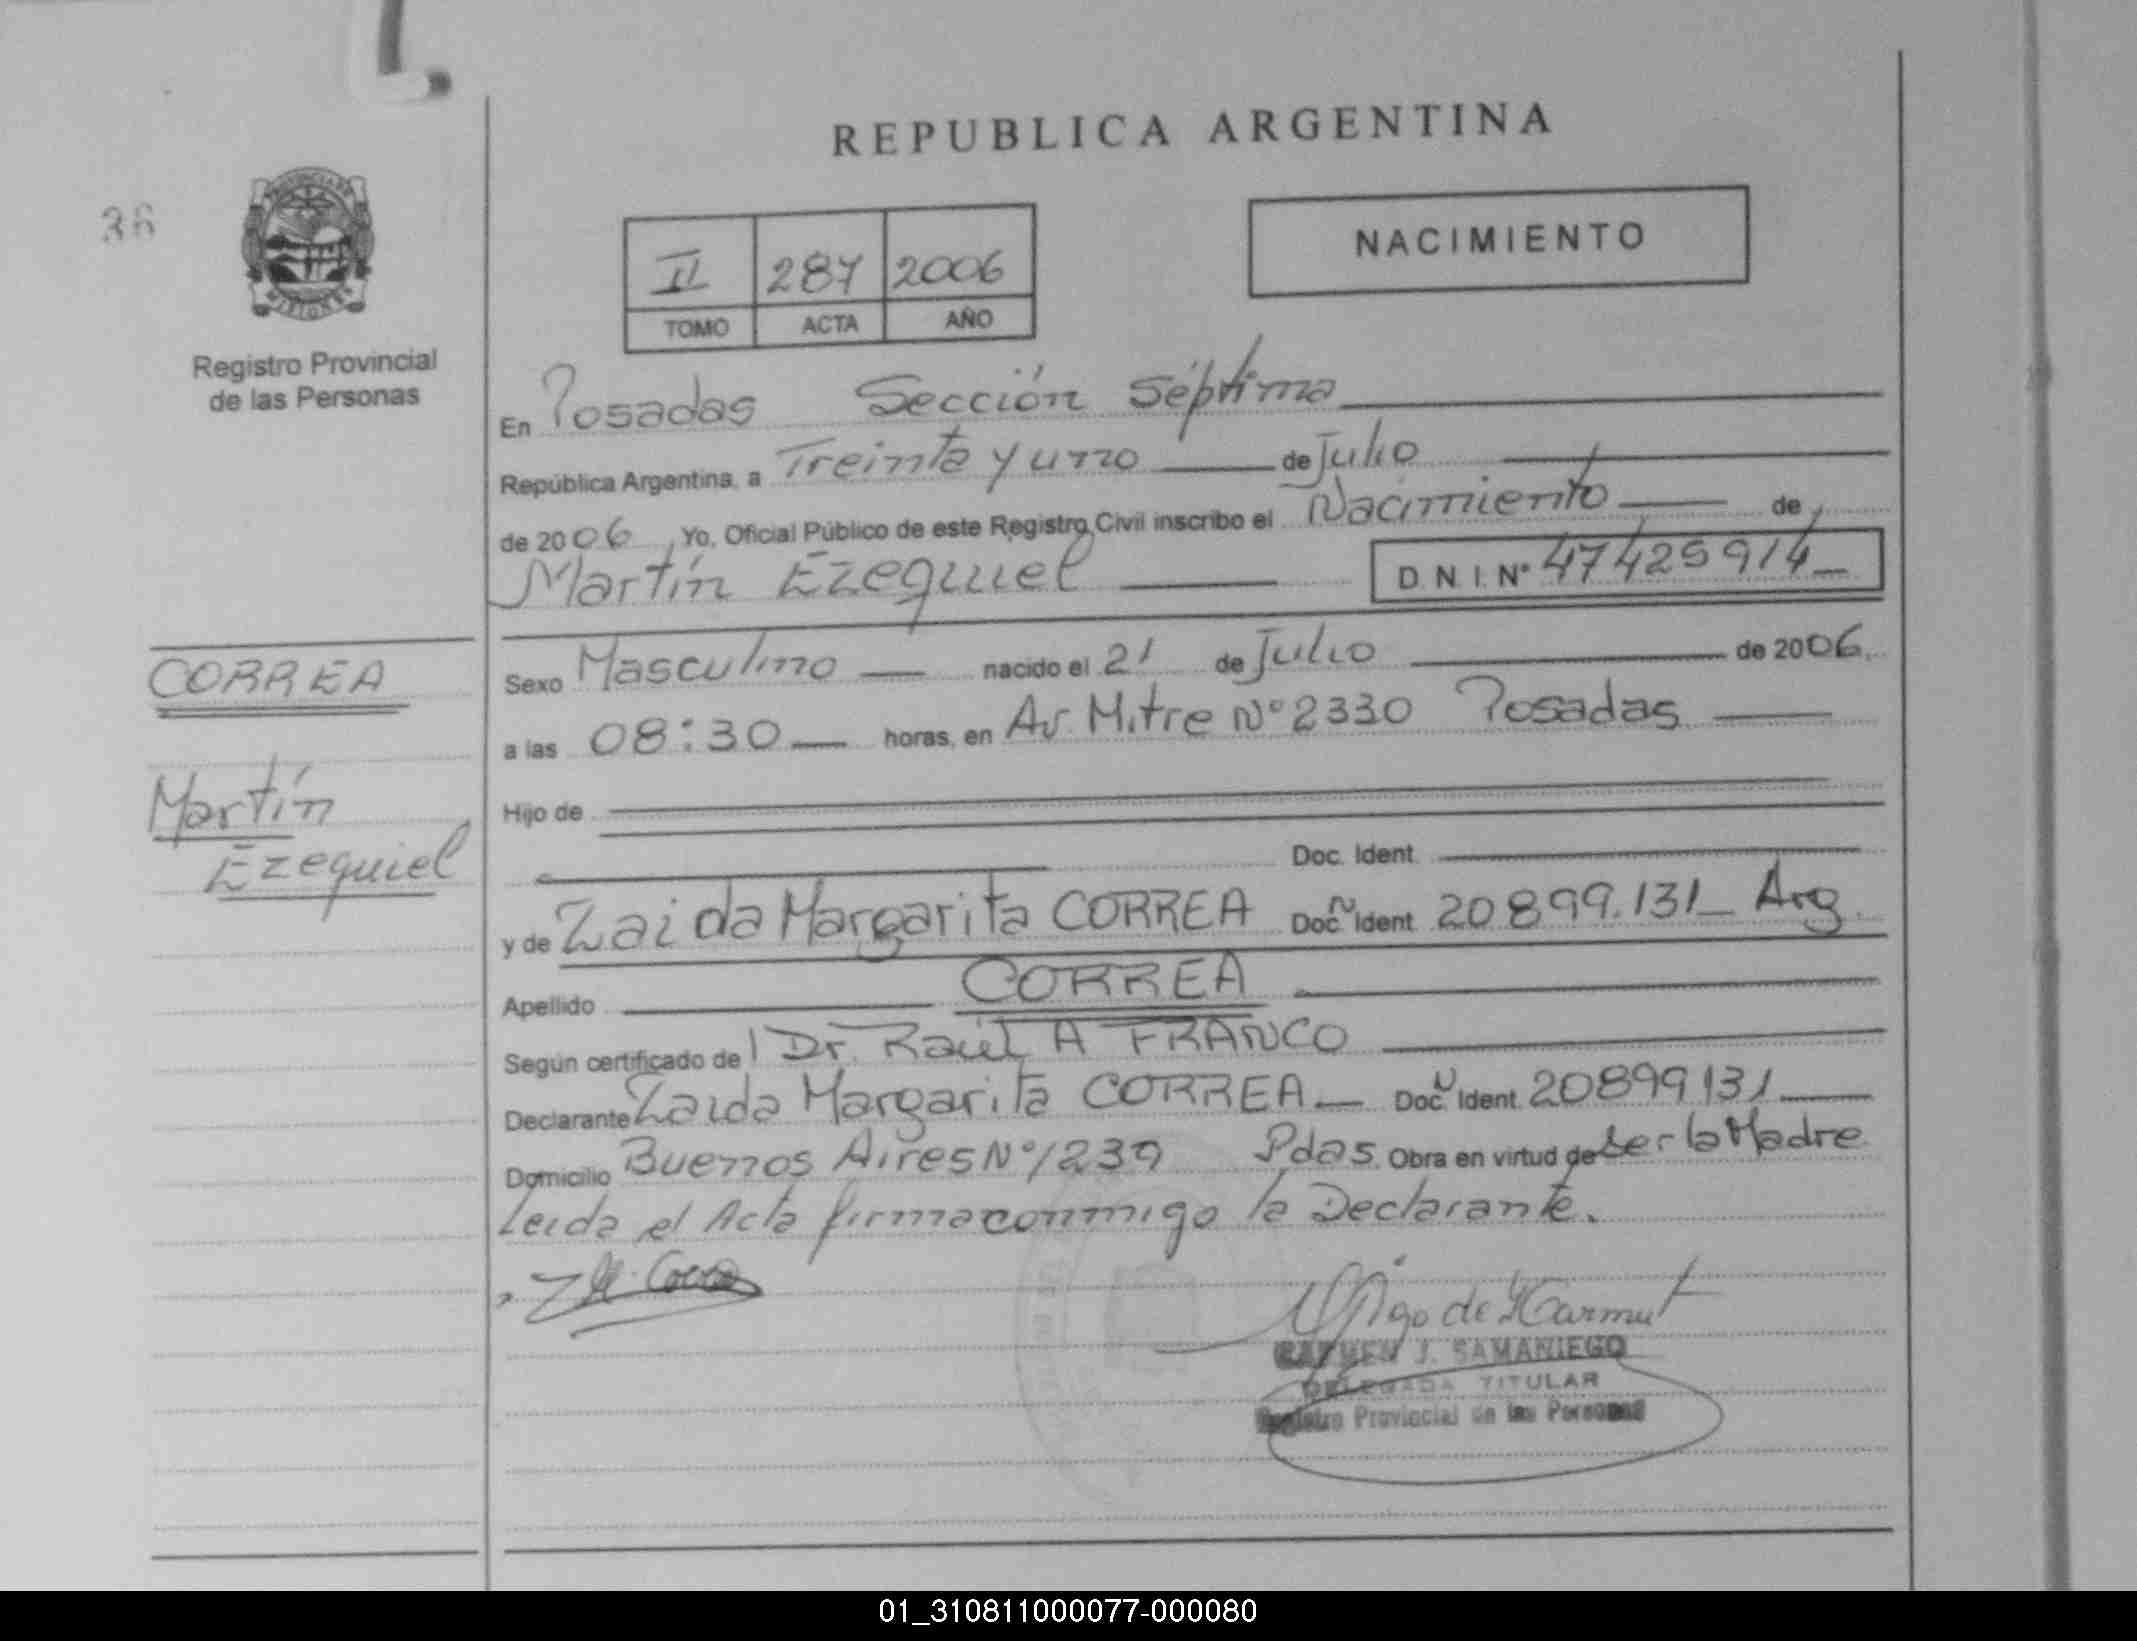 REPUBLICA ARGENTINA
36
PROVINCIA DE
MISIONES
Registro Provincial
de las Personas
II 287 2006
TOMO ACTA AÑO
NACIMIENTO
En Posadas Sección Séptima
República Argentina, a Treinta y uno de Julio
de 2006, Yo, Oficial Público de este Registro Civil inscribo el Nacimiento de
Martín Ezequiel D.N.I. Nº 47425914
CORREA
Martín
Ezequiel
Sexo Masculino nacido el 21 de Julio de 2006
a las 08:30 horas, en Av. Mitre Nº 2330 Posadas
Hijo de
Doc. Ident.
y de Zaida Margarita CORREA Doc. N Ident. 20899.131 Arg.
Apellido CORREA
Según certificado de Dr. Raúl A FRANCO
Declarante Zaida Margarita CORREA Doc. N Ident. 20899131
Domicilio Buenos Aires Nº 1239 Pdas. Obra en virtud de Ser la Madre
Leida el Acta firma conmigo la Declarante.
CARMEN J. SAMANIEGO
DELEGADA TITULAR
Registro Provincial de las Personas
01_310811000077-000080